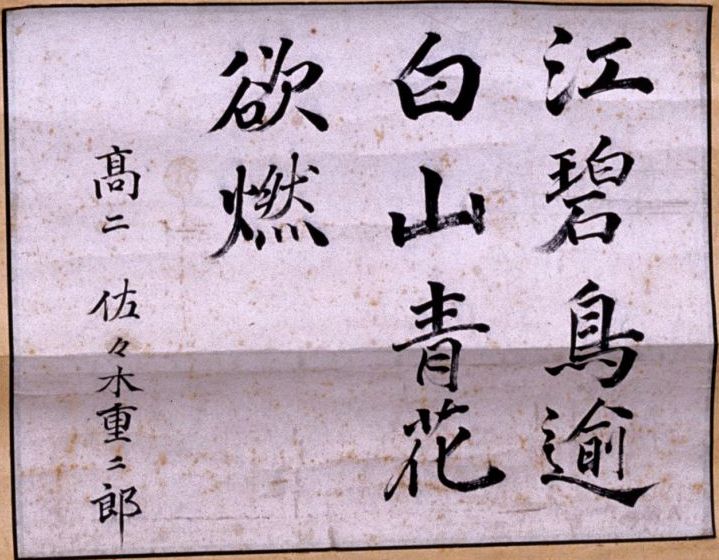 江碧鳥逾
白山青花
欲燃
髙二 佐々木重二郎